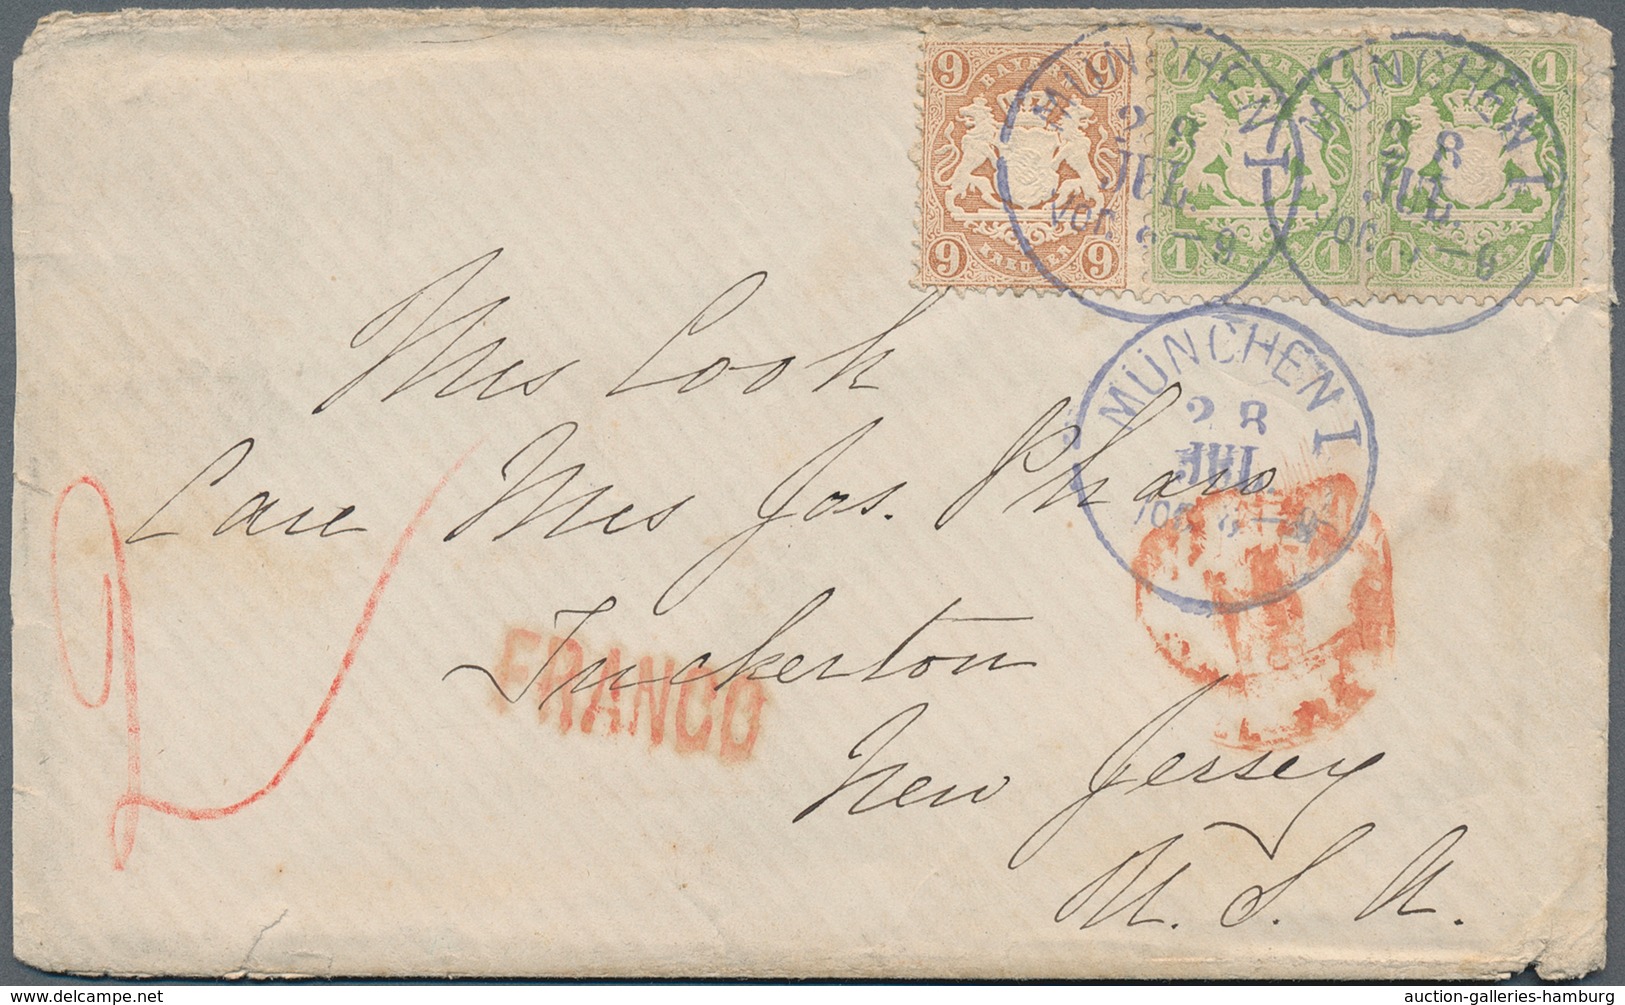 9 BAYERN 9
9 KREUZER 9
1 1
1 1
1 1
1 1
MÜNCHEN I
28
JUL.
Vor. 8-9
MÜNCHEN I
28
JUL.
Vor. 8-9
MÜNCHEN I
28
JUL.
Vor. 8-9
Mrs Cook
Care Mrs Jos. Pharo
Tuckerton
New Jersey
U.S.A.
FRANCO
2
www.delcampe.net
auction-galleries-hamburg